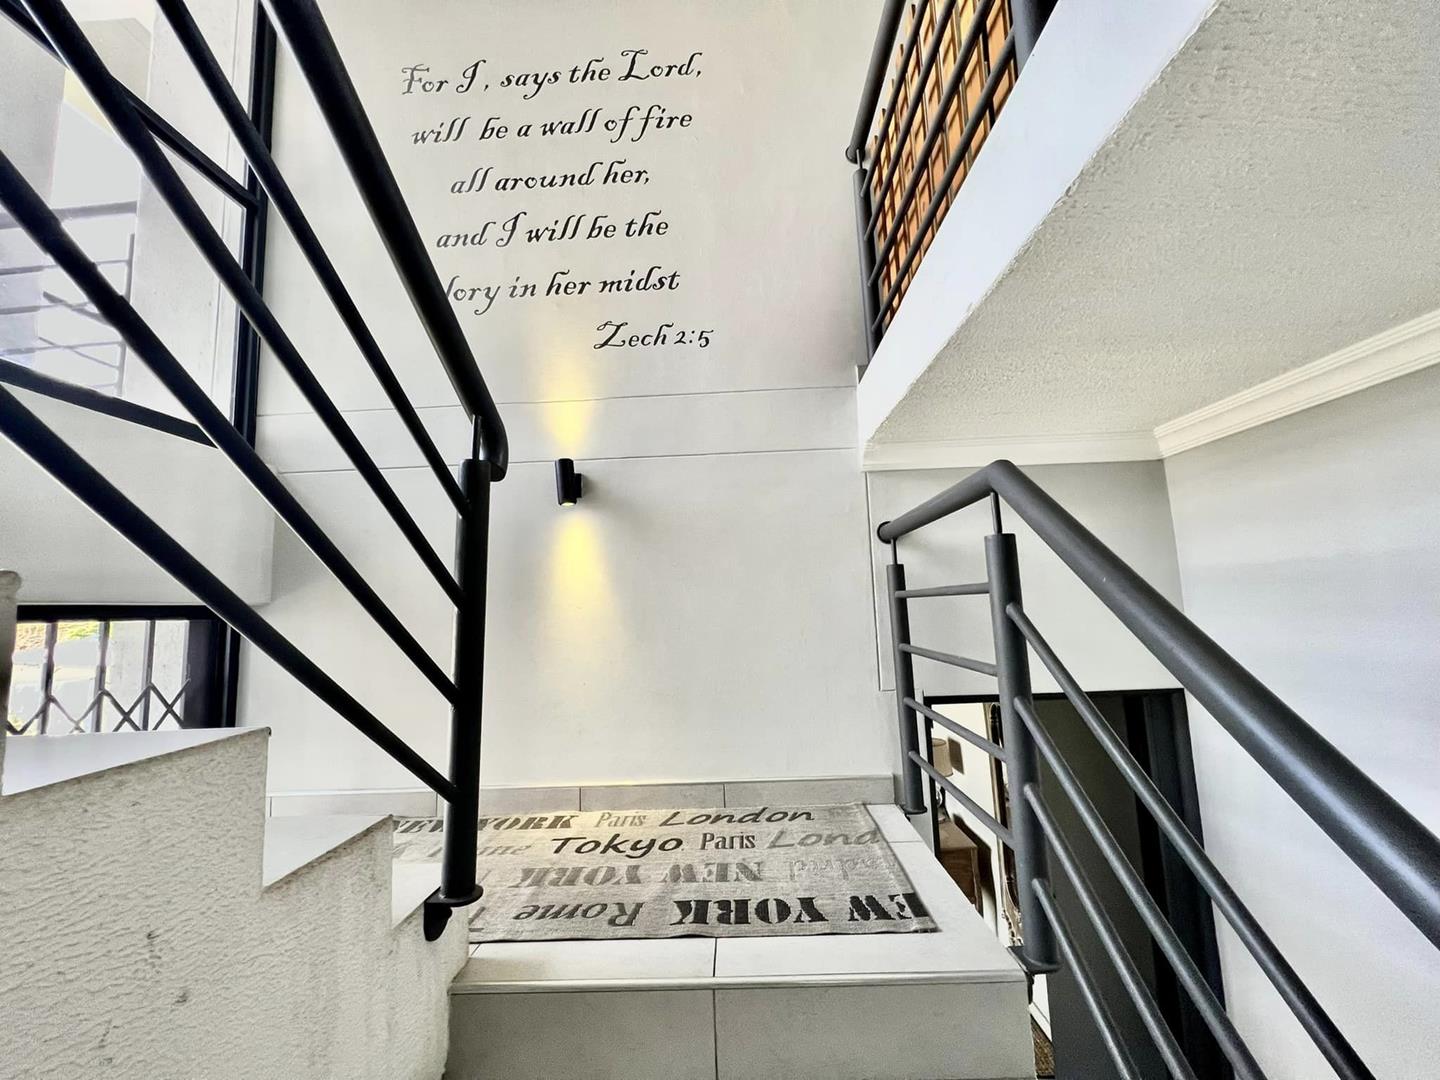 For I, says the Lord,
will be a wall of fire
all around her,
and I will be the
lory in her midst
Zech 2:5
NEW YORK Paris London
Tokyo Paris Lond
NEW YORK
Rome NEW YORK